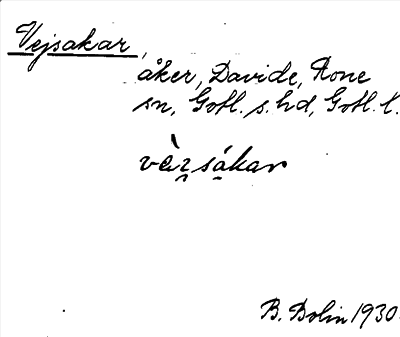 Vejsakar,
åker, Davide, Rone
sn, Gotl. s. hd, Gotl. l.
vàı̯sákar
B. Bolin 1930.